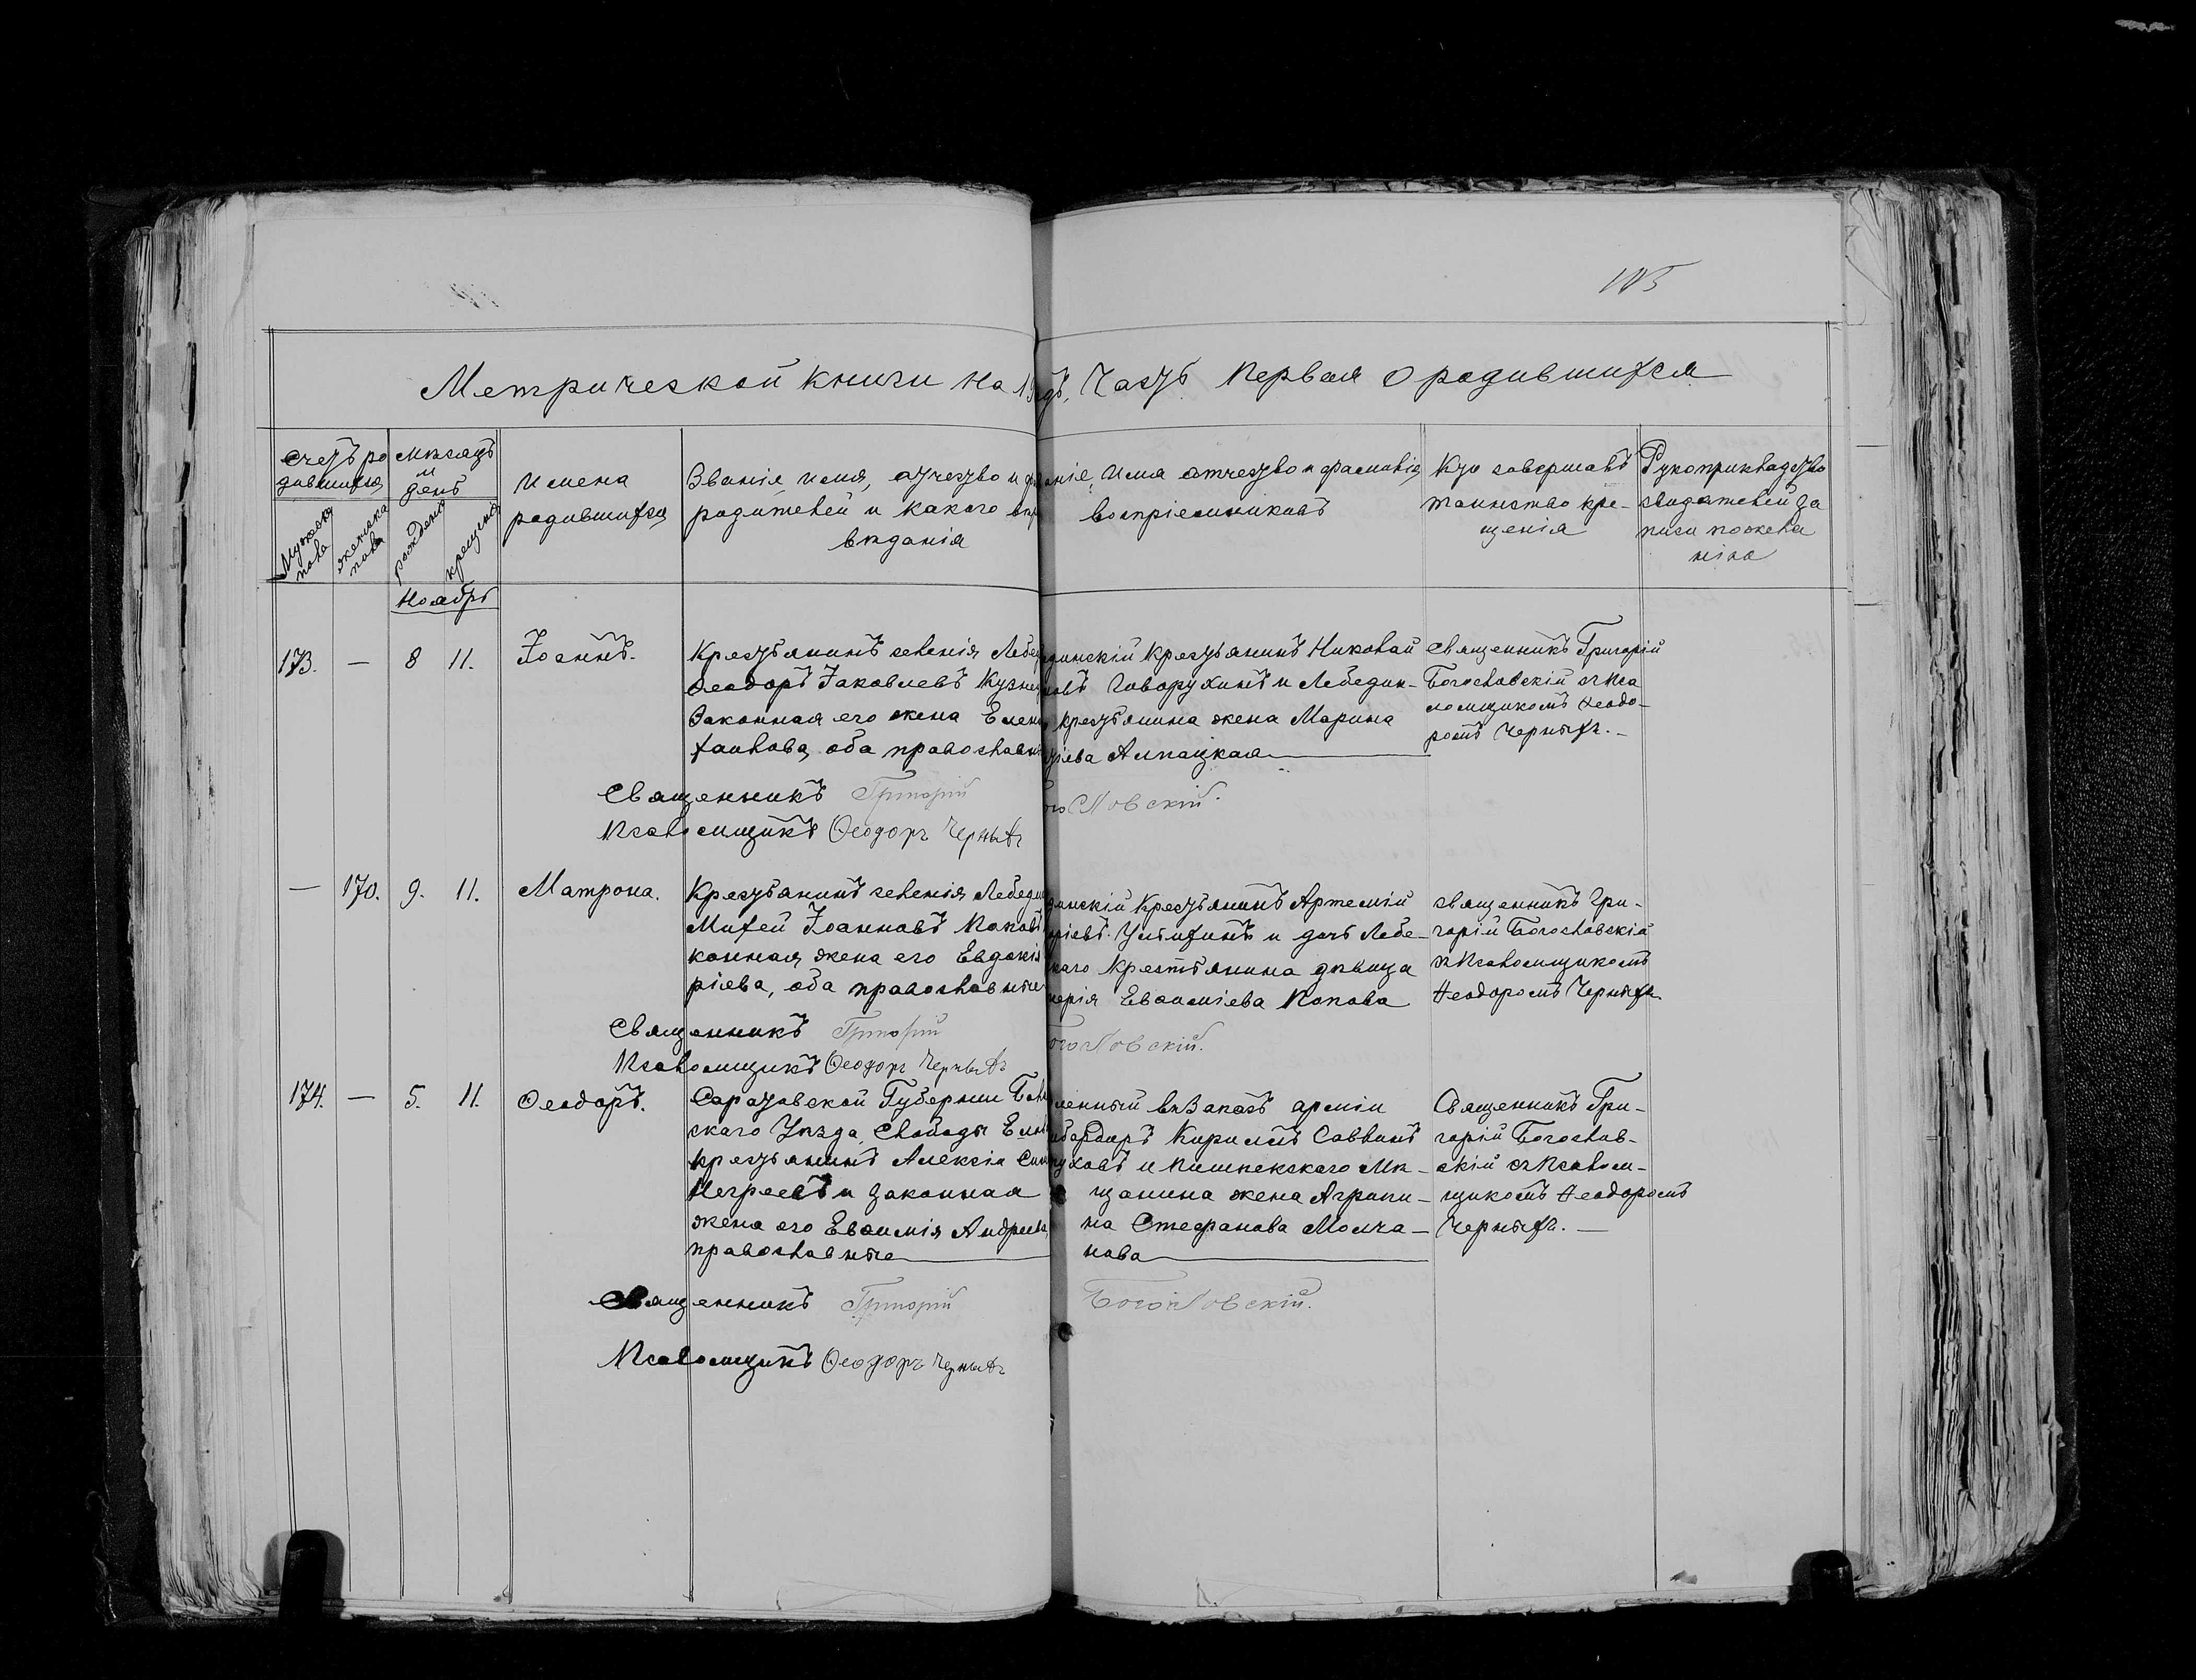 115
Метрической книги на 19
дъ, Часть Первая О родившихся
Счетъ родившихся
Мужска пола
женска пола
Мѣсяцъ и день
рожденія
крещенія
Имена
родившихся
Званіе, имя, отчество и фа
родителей и какого вѣро
вѣданія
аніе, Имя отчество и фамилія,
воспріемниковъ
Кто совершалъ
таинство кре-
щенія
Рукоприкладство
свидетелей за
писи по жела
нію
Ноябрь
173. — 8 11. Іоаннъ.
Крестьянинъ селенія Лебед
Ѳеодоръ Іаковлевъ Кузне
Законная его жена Елен
оба православн
динскій Крестьянинъ Николай
Говорухинъ и Лебедин-
крестьянина жена Марина
Алпацкая
Священникъ Григорій
Богословскій съ Пса
ломщикомъ Ѳеодо-
ромъ Черныхъ. —
Священникъ Григорій
огословскій.
Псаломщикъ Ѳеодоръ Черныхъ
— 170. 9. 11. Матрона.
Крестьянинъ селенія Лебеди
Михей Іоанновъ Поповъ
конная жена его Евдокія
ріева, оба православные
динскій Крестьянинъ Артемій
Устихинъ и дочь Лебе-
каго Крестьянина дѣвица
Евѳиміева Попова
священникъ Гри-
горій Богословскій
съ Псаломщикомъ
Ѳеодоромъ Черныхъ.
Священникъ Григорій
огословскій.
Псаломщикъ Ѳеодоръ Черныхъ
174. — 5. 11. Ѳеодоръ.
Саратовской Губерніи Бал
скаго Уѣзда, Слободы Елан
крестьянинъ Алексій Сим
и законная
жена его Евѳимія Андреева
православные
ленный въ Запасъ арміи
Кириллъ Саввинъ
и Пишпекскаго Мѣ-
щанина жена Агрипи-
на Стефанова Молча-
нова
Священникъ Гри-
горій Богослов-
скій съ Псалом-
щикомъ Ѳеодоромъ
Черныхъ. —
Священникъ Григорій
Богословскій.
Псаломщикъ Ѳеодоръ Черныхъ